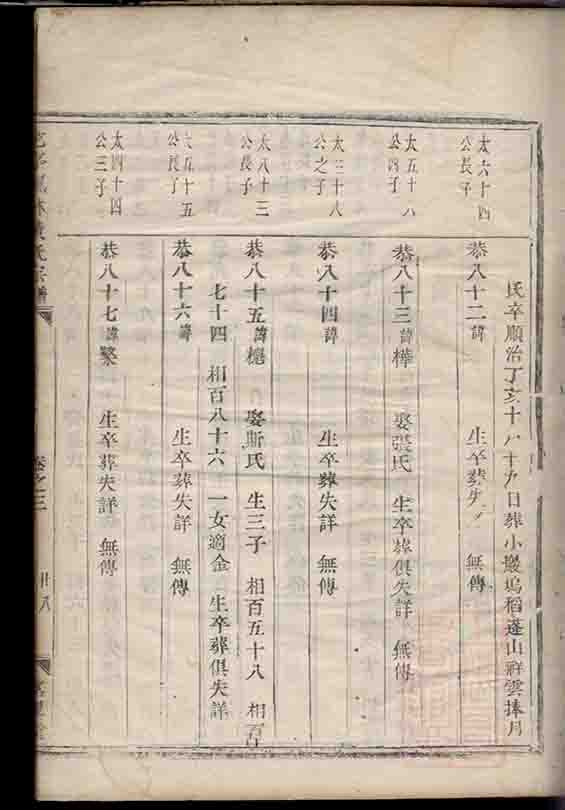 氏卒順治丁亥十八十九日葬小巖塢稻蓬山祥雲捧月
太六十四
公長子
恭八十二諱 生卒葬失 無傳
太五十八
公四子
恭八十三諱樺 娶張氏 生卒葬俱失詳 無傳
太三十八
公之子
恭八十四諱 生卒葬失詳 無傳
太八十三
公長子
恭八十五諱 娶斯氏 生三子 相百五十八 相百
七十四 相百八十六 一女適金 生卒葬俱失詳
太五十五
公長子
恭八十六諱 生卒葬失詳 無傳
太四十四
公三子
恭八十七諱 生卒葬失詳 無傳
氏宗譜
卷之三
廿八